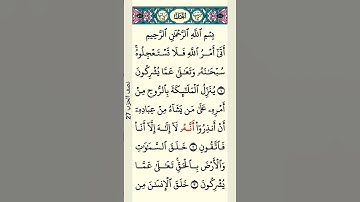 بِسْمِ اللَّهِ الرَّحْمَٰنِ الرَّحِيمِ
أَتَىٰٓ أَمْرُ ٱللَّهِ فَلَا تَسْتَعْجِلُوهُ
سُبْحَٰنَهُۥ وَتَعَٰلَىٰ عَمَّا يُشْرِكُونَ
۝١ يُنَزِّلُ ٱلْمَلَٰٓئِكَةَ بِٱلرُّوحِ مِنْ
أَمْرِهِۦ عَلَىٰ مَن يَشَآءُ مِنْ عِبَادِهِۦٓ
أَنْ أَنذِرُوٓا۟ أَنَّهُۥ لَآ إِلَٰهَ إِلَّآ أَنَا۠
فَٱتَّقُونِ ۝٢ خَلَقَ ٱلسَّمَٰوَٰتِ
وَٱلْأَرْضَ بِٱلْحَقِّ تَعَٰلَىٰ عَمَّا
يُشْرِكُونَ ۝٣ خَلَقَ ٱلْإِنسَٰنَ مِن